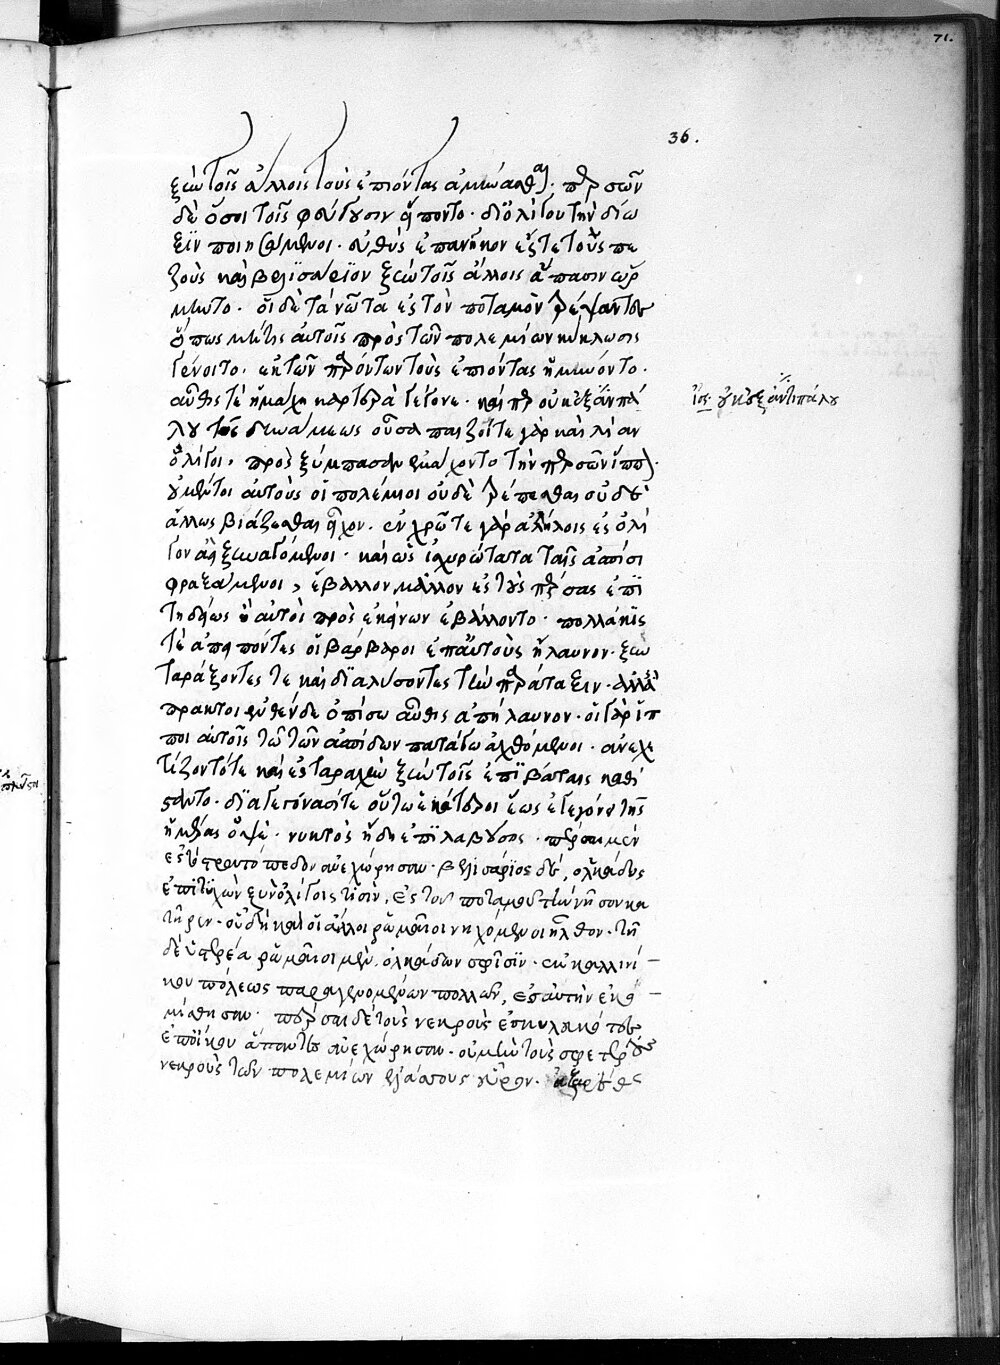 71.
36.
ξὺν τοῖς ἄλλοις τοὺς ἐπιόντας ἀμύνασθαι. περσῶν
δὲ ὅσοι τοῖς φεύγουσιν εἵποντο. δι᾽ ὀλίγου τὴν δίω
ξιν ποιησάμενοι. εὐθὺς ἐπανῆκον ἔς τε τοὺς πε
ζοὺς καὶ βελισάριον ξὺν τοῖς ἄλλοις ἅπασιν ὥρ
μηντο. οἱ δὲ τὰ νῶτα ἐς τὸν ποταμὸν τρέψαντες
ὅπως μή τις αὐτοῖς πρὸς τῶν πολεμίων κύκλωσις
γένοιτο. ἐκ τῶν παρόντων τοὺς ἐπιόντας ἠμύνοντο.
αὖθίς τε ἡ μάχη καρτερὰ γέγονε. καίπερ οὐκ ἐξ ἀνπά
λου τῆς δυνάμεως οὖσα πεζοί τε γὰρ καὶ λίαν
ὀλίγοι, πρὸς ξύμπασαν ἐμάχοντο τὴν περσῶν ἵππον.
οὐ μέντοι αὐτοὺς οἱ πολέμιοι οὐδὲ τρέπεσθαι οὐδὲ
ἄλλως βιάζεσθαι εἶχον. ἐν χρῷ τε γὰρ ἀλλήλοις ἐς ὀλί
γον ἀεὶ ξυναγόμενοι. καὶ ὡς ἰσχυρότατα ταῖς ἀσπίσι
φραξάμενοι, ἔβαλλον μᾶλλον ἐς τοὺς πέρσας ἐπι
τηδείως ἢ αὐτοὶ πρὸς ἐκείνων ἐβάλλοντο. πολλάκις
τὲ ἀπειπόντες οἱ βάρβαροι ἐπ᾽ αὐτοὺς ἤλαυνον. ξυν
ταράξοντές τε καὶ διαλύσοντες τὴν παράταξιν. ἀλλ᾽ ἄ
πρακτοι ἐνθένδε ὀπίσω αὖθις ἀπήλαυνον. οἱ γὰρ ἵπ
ποι αὐτοῖς τῷ τῶν ἀσπίδων πατάγω ἀχθόμενοι. ἀνεχε
τίζοντότε καὶ ἐς ταραχὴν ξὺν τοῖς ἐπιβάταις καθί
σταντο. διαγεγόνασί τε οὕτω ἑκάτεροι ἕως ἐγεγόνει τῆς
ἡμέρας ὀψὲ. νυκτὸς ἤδη ἐπιλαβούσης. πέρσαι μὲν
ἐς τὸ στρατόπεδον ἀνεχώρησαν. βελισάριος δὲ, ὁλκάδος
ἐπιτυχὼν ξὺν ὀλίγοις τισὶν, ἐς τοῦ ποταμοῦ τὴν νῆσον κα
τῆρεν. οὗ δὴ καὶ οἱ ἄλλοι ῥωμαῖοι νηχόμενοι ἦλθον. τῇ
δὲ ὑστερέα ῥωμαῖοι μὲν, ὁλκάδων σφίσιν. ἐκ καλλινί
κου πόλεως παραγενομένων πολλῶν, ἐς αὐτὴν ἐκο
μίσθησαν. πέρσαι δὲ τοὺς νεκροὺς ἐσκυλευκότες
ἐπ᾽ οἴκου ἅπαντες ἀνεχώρησαν. οὐ μὴν τοὺς σφετέρους
νεκροὺς τῶν πολεμίων ἐλάσσους εὗρον. ἀζαρέθης
ἴσ. οὐκ ἐξ ἀντιπάλου